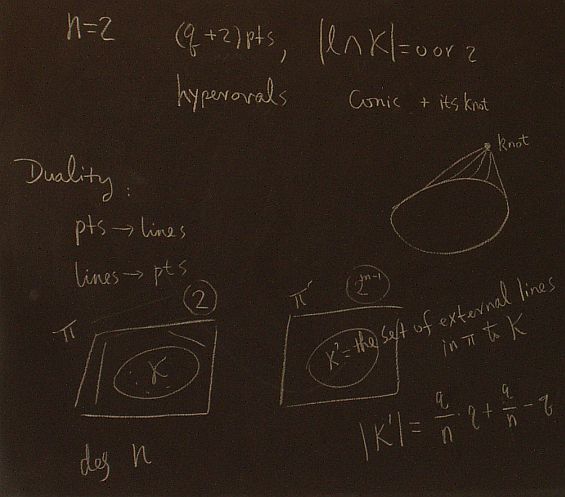 n=2 (q+2)pts, |l∩K|=0 or 2
hyperovals Conic + its knot
knot
Duality:
pts → lines
lines → pts
π 2
K
π' 2^{m-1}
K' = the set of external lines
in π to K
deg n
|K'| = q/n · q + q/n - q